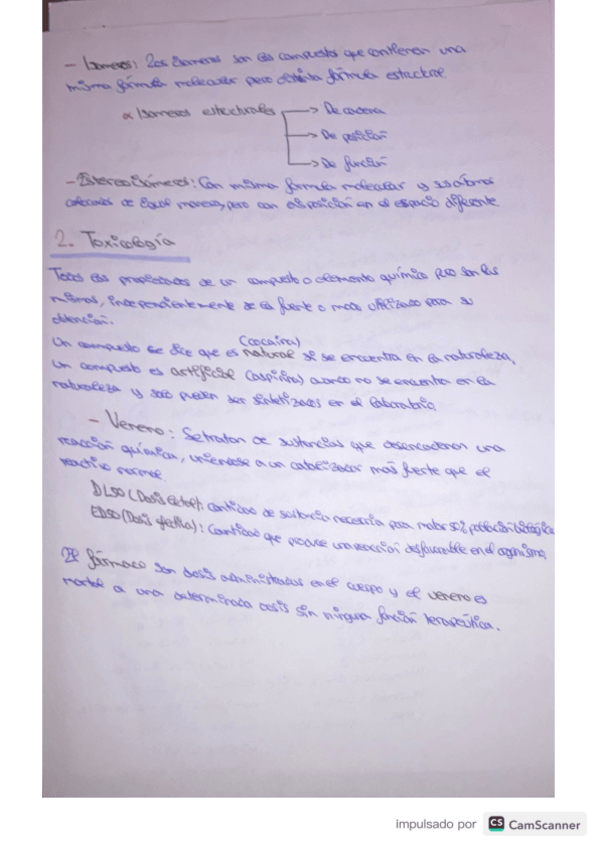 - Isomeros: Los isomeros son los compuestos que contienen una
misma fórmula molecular pero distinta fórmula estructural
* Isomeros estructurales → De cadena
→ De posición
→ De función
- Estereoisómeros: Con misma fórmula molecular y sus átomos
colocados de igual manera, pero con disposición en el espacio diferente
2. Toxicología
Todas las propiedades de un compuesto o elemento químico puro son las
mismas, independientemente de la fuente o modo utilizado para su
obtención.
(cocaína)
Un compuesto se dice que es natural si se encuentra en la naturaleza,
Un compuesto es artificial (aspirina) cuando no se encuentra en la
naturaleza y solo pueden ser sintetizados en el laboratorio,
- Veneno: Se tratan de sustancias que desencadenan una
reacción química, uniendose a un catalizador más fuerte que el
reactivo normal
DL50 (Dosis Letal): cantidad de sustancia necesaria para matar 50% población biológica
ED50 (Dosis efectiva): Cantidad que produce una reacción desfavorable en el organismo,
El fármaco son dosis administradas en el cuerpo y el veneno es
mortal a una determinada dosis sin ninguna función terapeútica.
impulsado por CS CamScanner